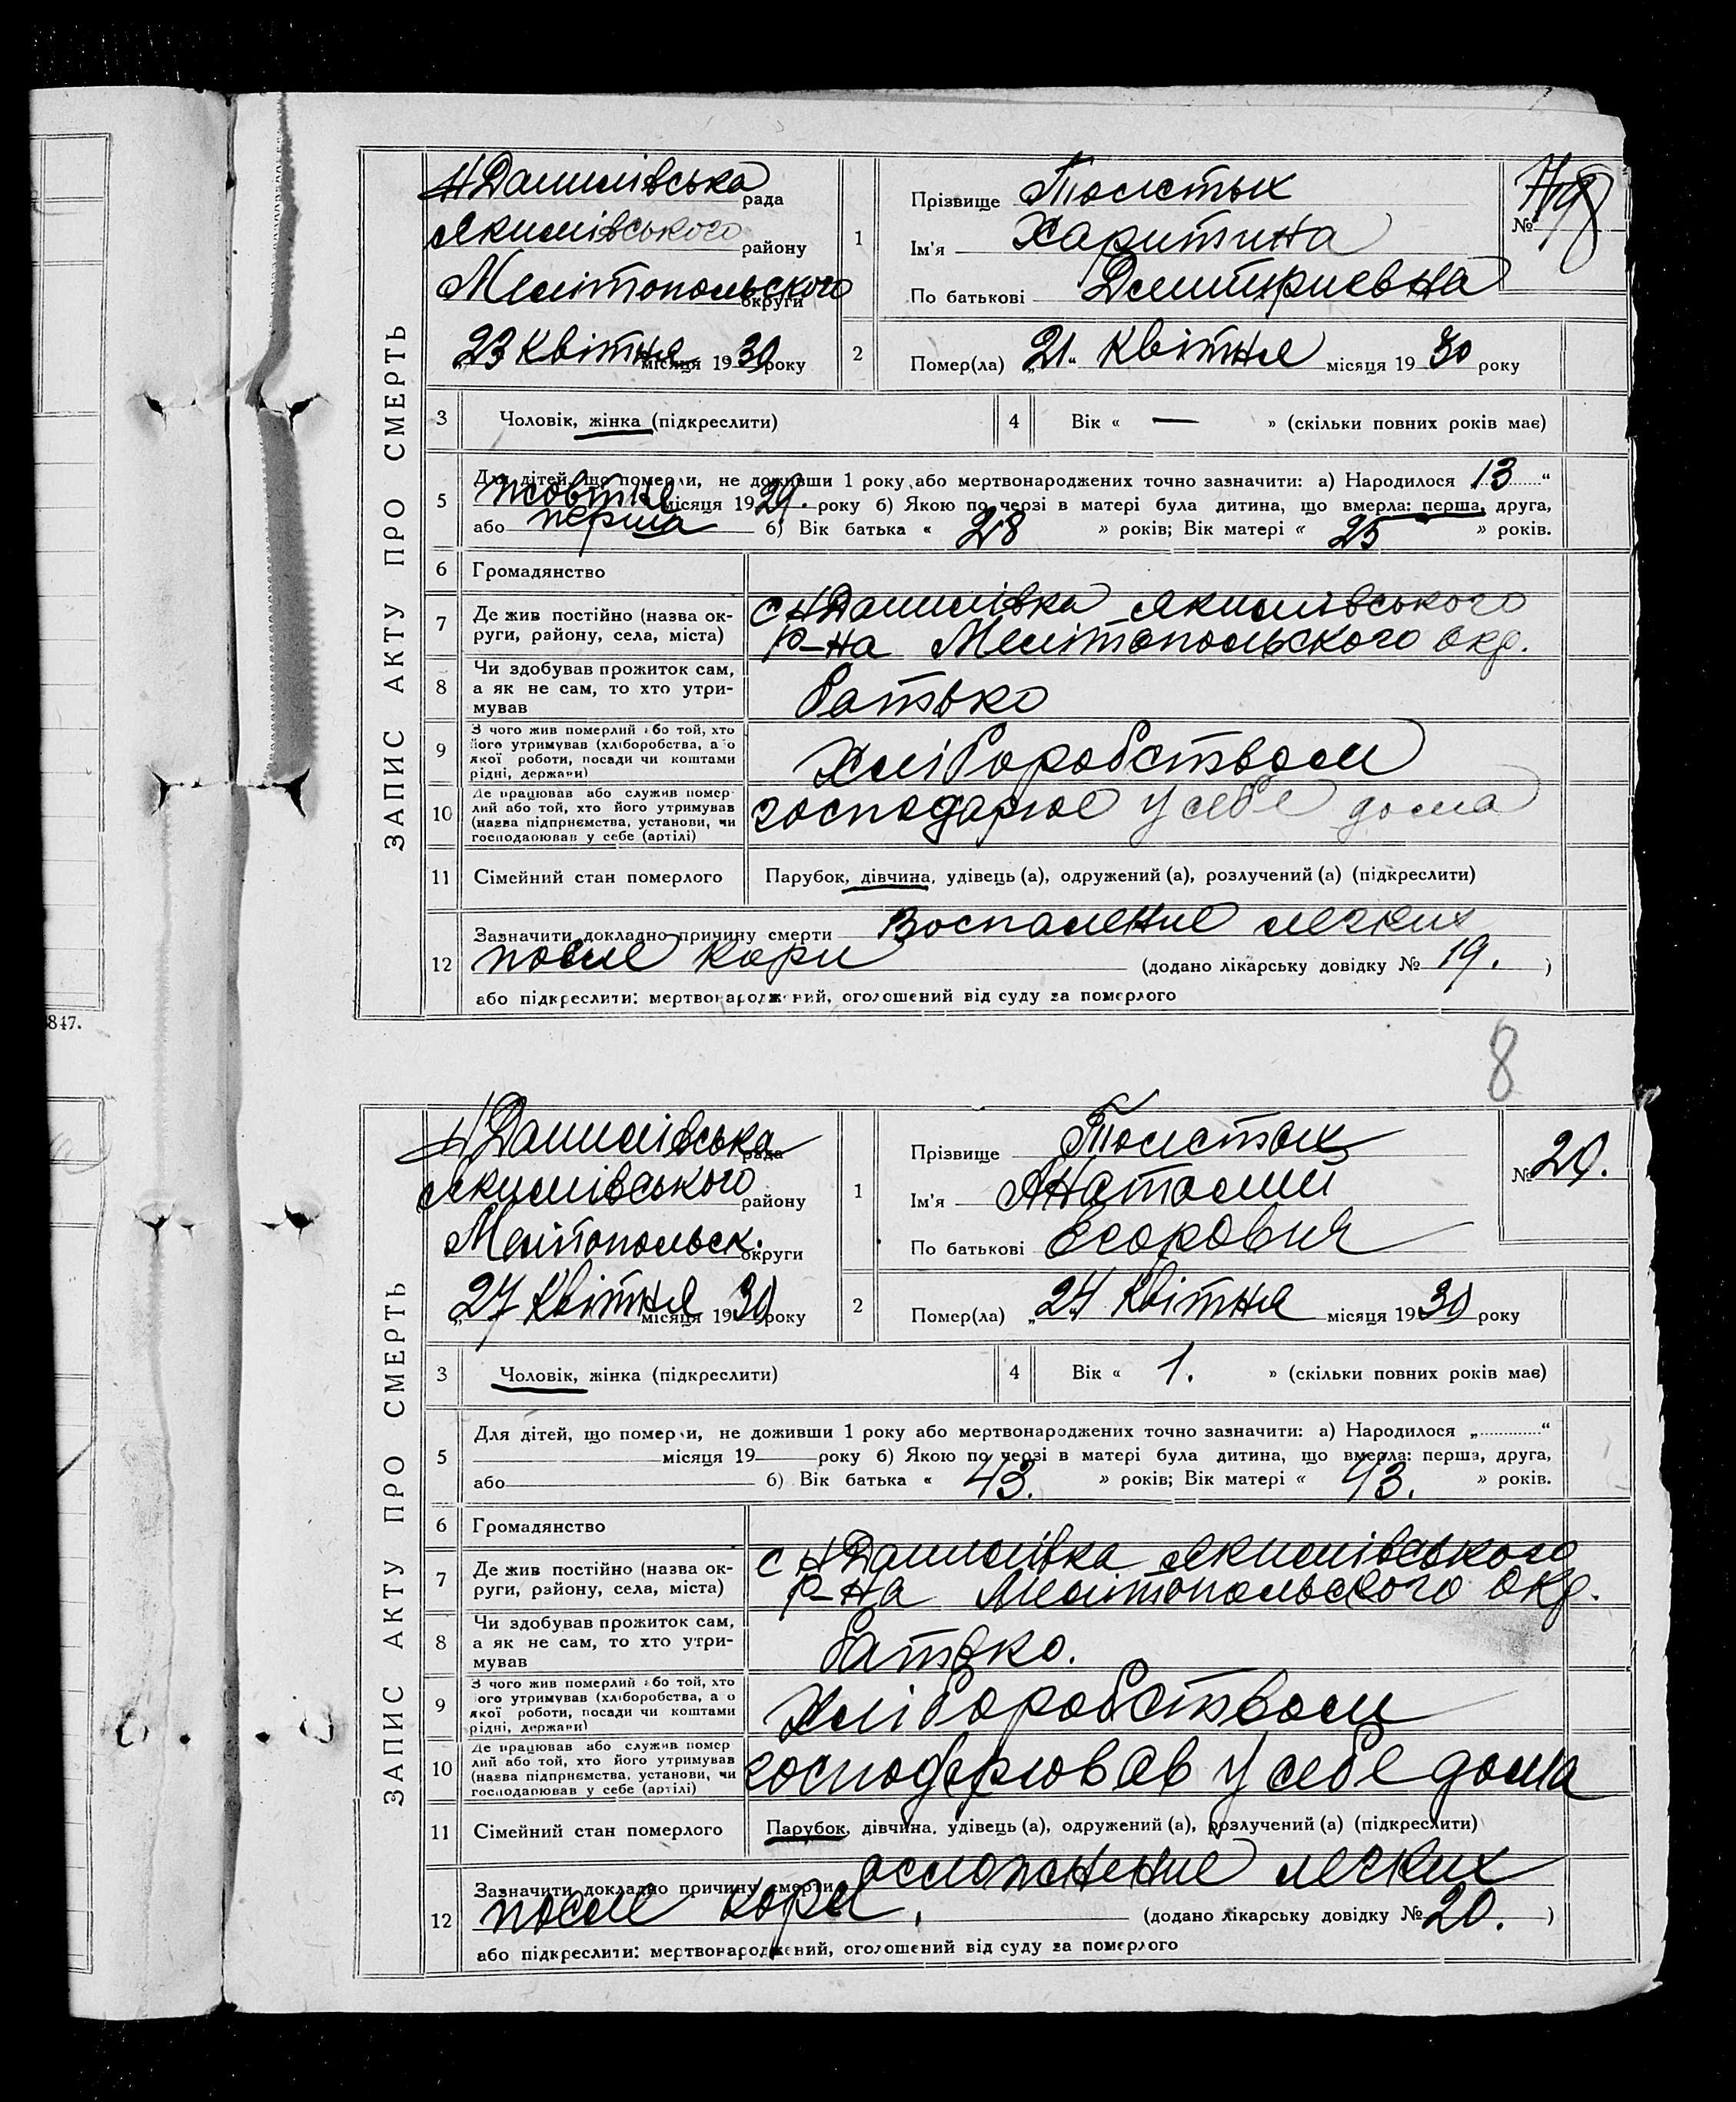 847.
ЗАПИС АКТУ ПРО СМЕРТЬ
Н Данилівська рада
Якимівського району
Мелітопольського округи
23 Квітня місяця 1930 року
1
Прізвище Толстых
Ім'я Харитина
По батькові Дмитриевна
№
2
Помер(ла) „21" Квітня місяця 1930 року
3 Чоловік, жінка (підкреслити)
4 Вік « — » (скільки повних років має)
5 Для дітей, що померли, не доживши 1 року або мертвонароджених точно зазначити: а) Народилося 13 "
жовтня місяця 1929. року б) Якою по черзі в матері була дитина, що вмерла: перша, друга,
або перша б) Вік батька « 28 » років; Вік матері « 25 » років.
6 Громадянство
7 Де жив постійно (назва округи, району, села, міста)
с НДанилівка Якимівського
р-на Мелітопольського Окр.
8 Чи здобував прожиток сам, а як не сам, то хто утримував
батько
9 З чого жив померлий або той, хто його утримував (хліборобства, або якої роботи, посади чи коштами рідні, держави)
Хліборобством
10 Де працював або служив померлий або той, хто його утримував (назва підприємства, установи, чи господарював у себе (артілі)
господарює у себе дома
11 Сімейний стан померлого
Парубок, дівчина, удівець (а), одружений (а), розлучений (а) (підкреслити)
12 Зазначити докладно причину смерти Воспаление легких
после кори (додано лікарську довідку № 19. )
або підкреслити: мертвонароджений, оголошений від суду за померлого
8
ЗАПИС АКТУ ПРО СМЕРТЬ
Н Данилівська рада
Якимівського району
Мелітопольськ. округи
„27 Квітня місяця 1930 року
1
Прізвище Толстых
Ім'я Анатолий
По батькові Егорович
№ 20.
2
Помер(ла) „24 Квітня місяця 1930 року
3 Чоловік, жінка (підкреслити)
4 Вік « 1. » (скільки повних років має)
5 Для дітей, що померли, не доживши 1 року або мертвонароджених точно зазначити: а) Народилося „ "
місяця 19 року б) Якою по черзі в матері була дитина, що вмерла: перша, друга,
або б) Вік батька « 43. » років; Вік матері « 43. » років.
6 Громадянство
7 Де жив постійно (назва округи, району, села, міста)
с НДанилівка Якимівського
р-на Мелітопольского Окр.
8 Чи здобував прожиток сам, а як не сам, то хто утримував
батько.
9 З чого жив померлий або той, хто його утримував (хліборобства, або якої роботи, посади чи коштами рідні, держави)
Хліборобством
10 Де працював або служив померлий або той, хто його утримував (назва підприємства, установи, чи господарював у себе (артілі)
господарював у себе дома
11 Сімейний стан померлого
Парубок, дівчина, удівець (а), одружений (а), розлучений (а) (підкреслити)
12 Зазначити докладно причину смерти осложнение легких
после кори. (додано лікарську довідку № 20. )
або підкреслити: мертвонароджений, оголошений від суду за померлого